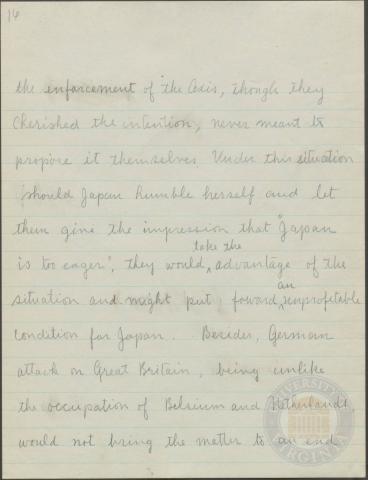 16
the enforcement of the Axis, though they
cherished the intention, never meant to
propose it themselves. Under this situation
should Japan humble herself and let
them give the impression that "Japan
is too eager", they would take the advantage of the
situation and might put forward an unprofitable
condition for Japan. Besides, German
attack on Great Britain, being unlike
the occupation of Belgium and Netherlands,
would not bring the matter to an end
UNIVERSITY
VIRGINIA